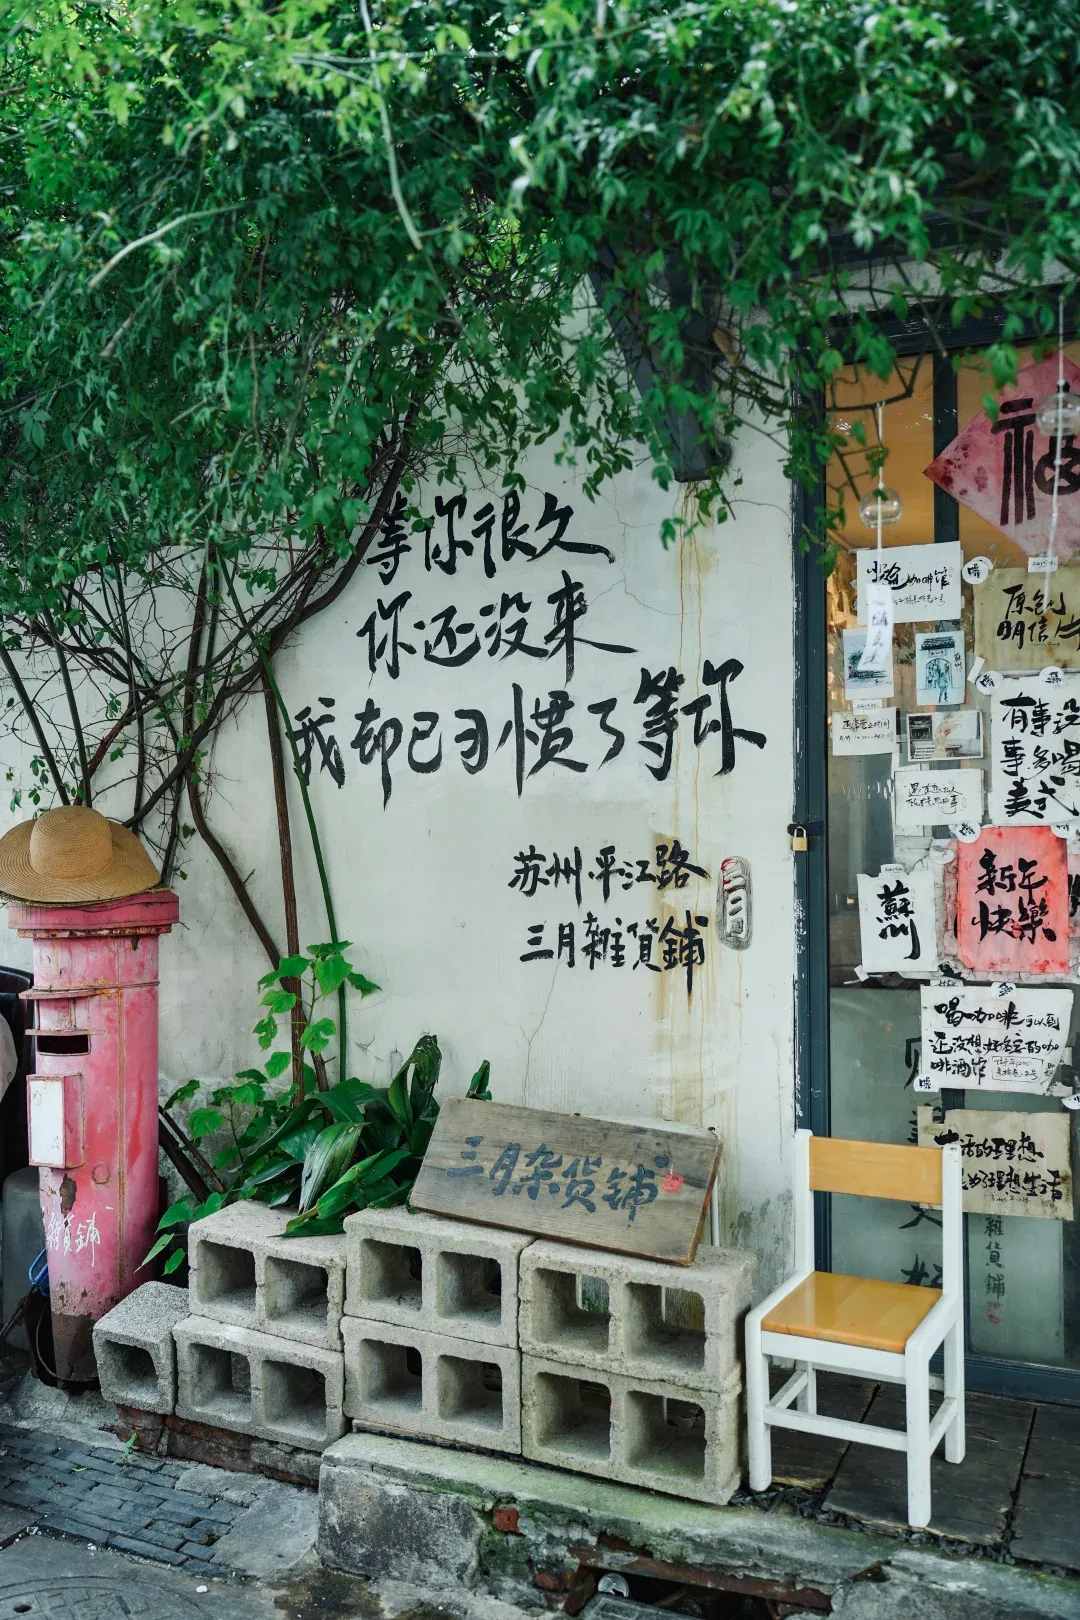 等你很久
你还没来
我却已习惯了等你
苏州平江路
三月雜貨鋪
三月
三月杂货铺
雜貨鋪
福
咖啡馆
原创
明信片
有事没
事多喝
美式
蘇州
新年
快樂
喝咖啡可以到
还没想好名字的咖
啡酒馆
生活的理想
理想生活
雜貨鋪